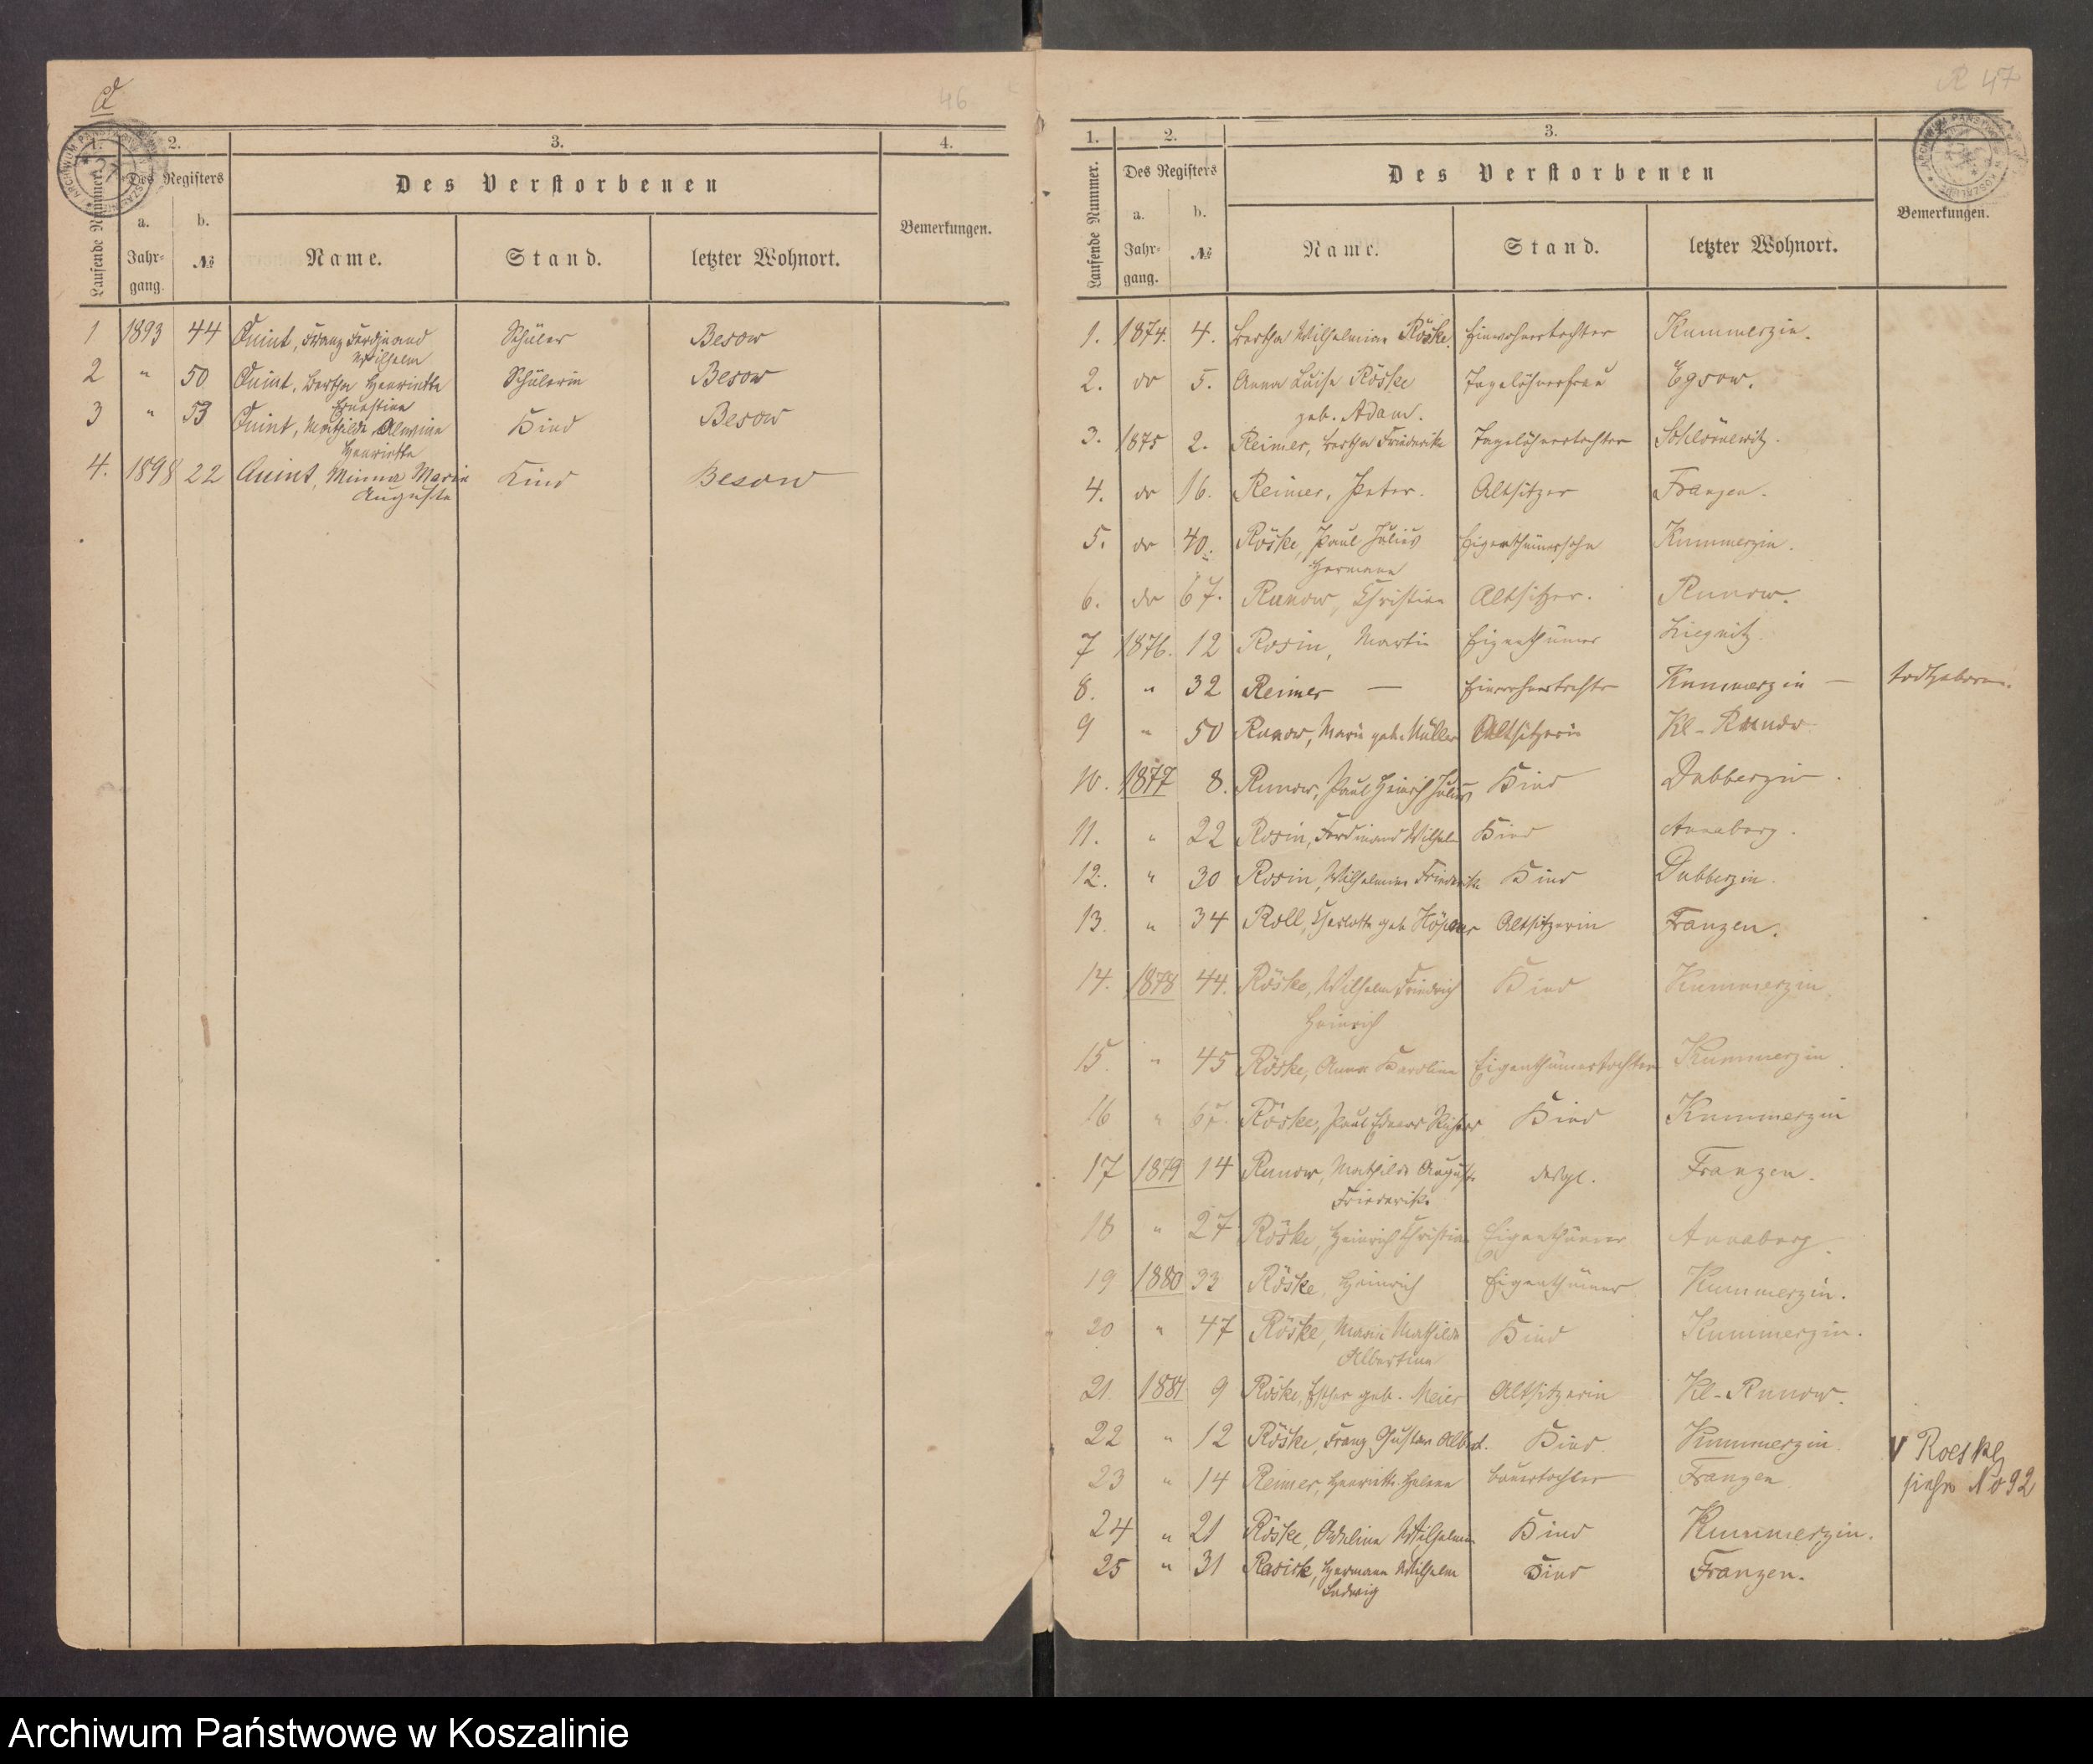 Q
46
1. 2. 3. 4.
Laufende Nummer. Des Registers Des Verstorbenen Bemerkungen.
a. b.
Jahr- № Name. Stand. letzter Wohnort.
gang.
1 1893 44 Quint, Franz Ferdinand Schüler Besow
Wilhelm
2 " 50 Quint, Bertha Henriette Schülerin Besow
Ernestine
3 " 53 Quint, Mathilde Alwine Kind Besow
Henriette
4. 1898 22 Quint, Minna Marie Kind Besow
Auguste
R 47
1. 2. 3.
Laufende Nummer. Des Registers Des Verstorbenen Bemerkungen.
a. b.
Jahr- № Name. Stand. letzter Wohnort.
gang.
1. 1874. 4. Bertha Wilhelmine Röske. Einwohnertochter Kummerzin.
2. do 5. Anna Luise Röske Tagelöhnerfrau Egsow.
geb. Adam.
3. 1875 2. Reimer, Bertha Friederike Tagelöhnertochter
4. do 16. Reimer, Peter. Altsitzer Franzen.
5. do 40. Röske, Paul Julius Eigenthümersohn Kummerzin.
Hermann
6. do 67. Runow, Christian Altsitzer. Runow.
7 1876. 12 Rosin, Martin Eigenthümer Liegnitz.
8. " 32 Reimer — Einwohnertochter Kummerzin — todtgeboren.
9 " 50 Runow, Marie geb. Müller Altsitzerin Kl-Runow
10. 1877 8. Runow, Paul Heinrich Julius Kind Dubberzin.
11. " 22 Rosin, Ferdinand Wilhelm Kind Annaberg.
12. " 30 Rosin, Wilhelmine Friederike Kind Dubberzin.
13. " 34 Roll, Charlotte geb. Altsitzerin Franzen.
14. 1878 44. Röske, Wilhelm Friedrich Kind Kummerzin.
Heinrich
15. " 45 Röske, Anna Karoline Eigenthümertochter Kummerzin.
16 " 67. Röske, Paul Eduard Richard Kind Kummerzin
17 1879 14 Runow, Mathilde Auguste desgl. Franzen.
Friederike
18 " 27 Röske, Heinrich Christian Eigenthümer Annaberg.
19 1880 33 Röske, Heinrich Eigenthümer Kummerzin.
20 " 47 Röske, Marie Mathilde Kind Kummerzin.
Albertine
21. 1881 9 Röske, Esther geb. Meier Altsitzerin Kl-Runow.
22 " 12 Röske, Franz Gustav Albert. Kind Kummerzin.
V Roeske
23 " 14 Reimer, Henriette Helene Bauertochter Franzen
siehe No 92
24 " 21 Röske, Adeline Wilhelmine Kind Kummerzin.
25 " 31 Rasick, Hermann Wilhelm Kind Franzen.
Ludwig
Archiwum Państwowe w Koszalinie